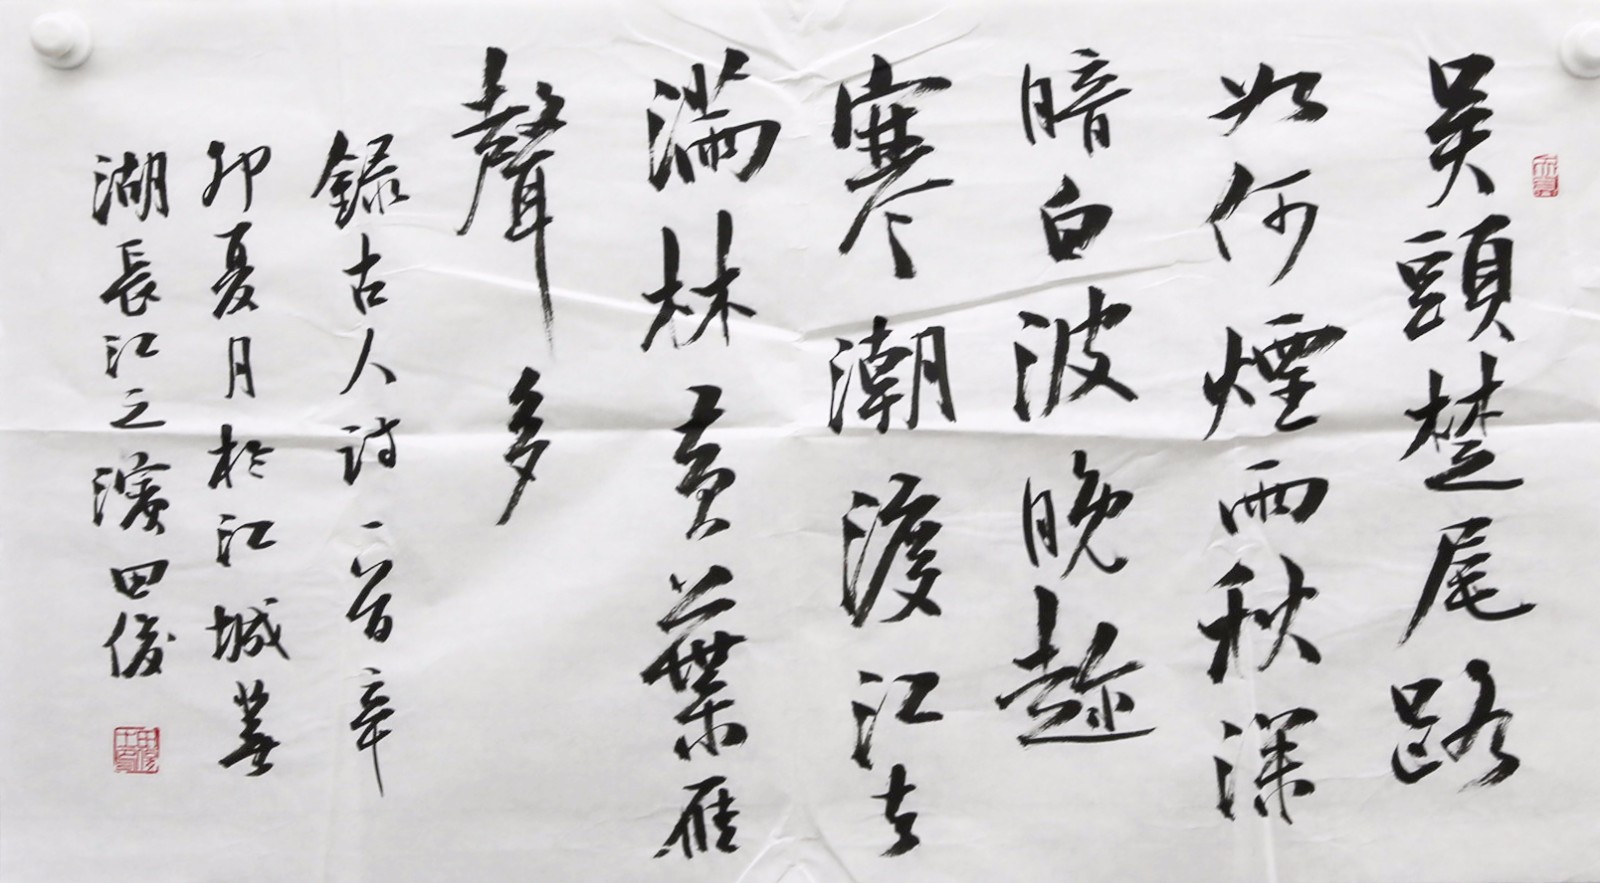 吳頭楚尾路
如何煙雨秋深
暗白波晚趂
寒潮渡江去
滿林黃葉雁
聲多
錄古人詩一首辛
卯夏月於江城蕪
湖長江之濱田俊